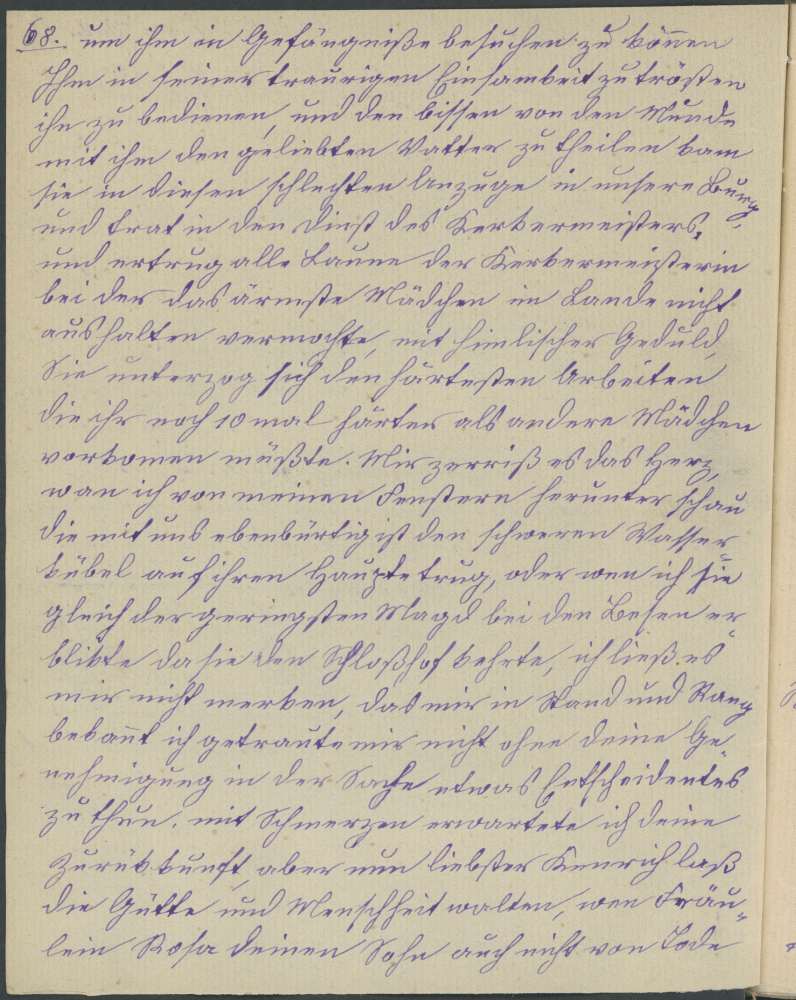 68. um ihm in Gefängniße besuchen zu können
Ihm in seiner traurigen Einsamkeit zu trösten
ihn zu bedienen, und den bissen von den Munde
mit ihm den geliebten Vatter zu theilen kam
sie in diesen schlechten Anzuge in unsere Burg,
und trat in den Dinst des Kerkermeisters,
und ertrug alle Laune der Kerkermeisterin
bei der das ärmste Mädchen im Lande nicht
aushalten vermochte, mit himlischer Geduld,
Sie unterzog sich den härtesten Arbeiten
die ihr noch 10 mal härter als andere Mädchen
vorkomen müßte. Mir zerriß es das Herz,
wan ich von meinen Fenstern herunter schau
die mit uns ebenbürtig ist den schweren Wasser
kübel auf ihren Haupte trug, oder wen ich sie
gleich der geringsten Magd bei den Besen er„
blikte da sie den Schloßhof kehrte, ich ließ es
mir nicht merken, das mir in Stand und Rang
bekant ich getraute mir nicht ohne deine Ge„
nehmigung in der Sache etwas Entscheidentes
zu thun. mit Schmerzen erwartete ich deine
Zurükkunft, aber nun liebster Kunrich laß
die Gütte und Menschheit walten, wen Fräu„
lein Rosa deinen Sohn auch nicht von Tode